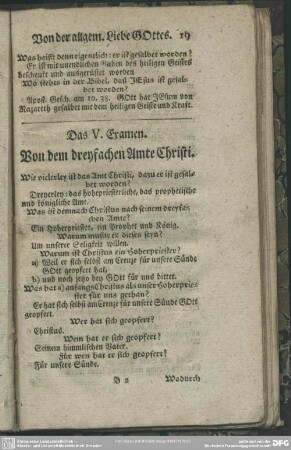 Von der allgem. Liebe GOttes. 19
Was heisst denn eigentlich: er ist gesalbet worden?
Er ist mit unendlichen Gaben des heiligen Geistes
beschenkt und ausgerüstet worden
Wo stehts in der Bibel, daß JEsus ist gesal-
bet worden?
Apost. Gesch. am 10. 38. GOtt hat JEsum von
Nazareth gesalbet mit dem heiligen Geiste und Kraft.
Das V. Examen.
Von dem dreyfachen Amte Christi.
Wie vielerley ist das Amt Christi, dazu er ist gesal-
bet worden?
Dreyerley: das hohepriesterliche, das prophetische
und königliche Amt.
Was ist demnach Christus nach seinem dreyfa-
chen Amte?
Ein Hoherpriester, ein Prophet und König.
Warum muste er dieses seyn?
Um unserer Seligkeit willen.
Warum ist Christus ein Hoherpriester?
a) Weil er sich selbst am Creuze für unsere Sünde
GOtt geopfert hat;
b) und noch jetzo bey GOtt für uns bittet.
Was hat a) anfangs Christus als unser Hoherprie-
ster für uns gethan?
Er hat sich selbst am Creuze für unsere Sünde GOtt
geopfert.
Wer hat sich geopfert?
Christus.
Wem hat er sich geopfert?
Seinem himmlischen Vater.
Für wen hat er sich geopfert?
Für unsere Sünde.
B 2 Wodurch
DFG